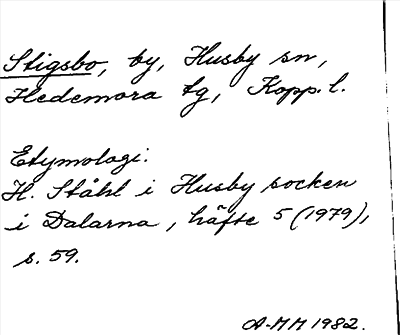 Stigsbo, by, Husby sn,
Hedemora tg, Kopp. l.
Etymologi:
H. Ståhl i Husby socken
i Dalarna, häfte 5 (1979),
s. 59.
A-MH 1982.